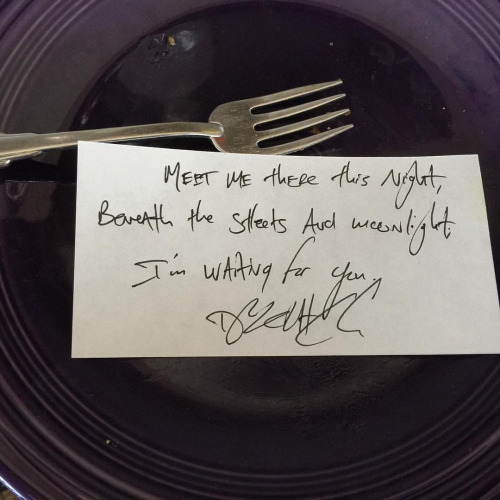 Meet me there this Night,
Beneath the streets And moonlight.
I'm waiting for you.